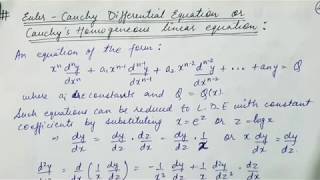 # Euler-Cauchy Differential Equation or
Cauchy's Homogeneous linear equation:
An equation of the form:
xⁿ dⁿy/dxⁿ + a₁xⁿ⁻¹ dⁿ⁻¹y/dxⁿ⁻¹ + a₂xⁿ⁻² dⁿ⁻²y/dxⁿ⁻² + ... + any = Q
where aᵢ's are constants and Q = Q(x).
Such equations can be reduced to L.D.E with constant
coefficients by substituting x = eᶻ or z = log x
⇒ dy/dx = dy/dz · dz/dx = dy/dz · 1/x or x dy/dx = dy/dz
d²y/dx² = d/dx (1/x dy/dz) = -1/x² dy/dz + 1/x d²y/dz² · dz/dx